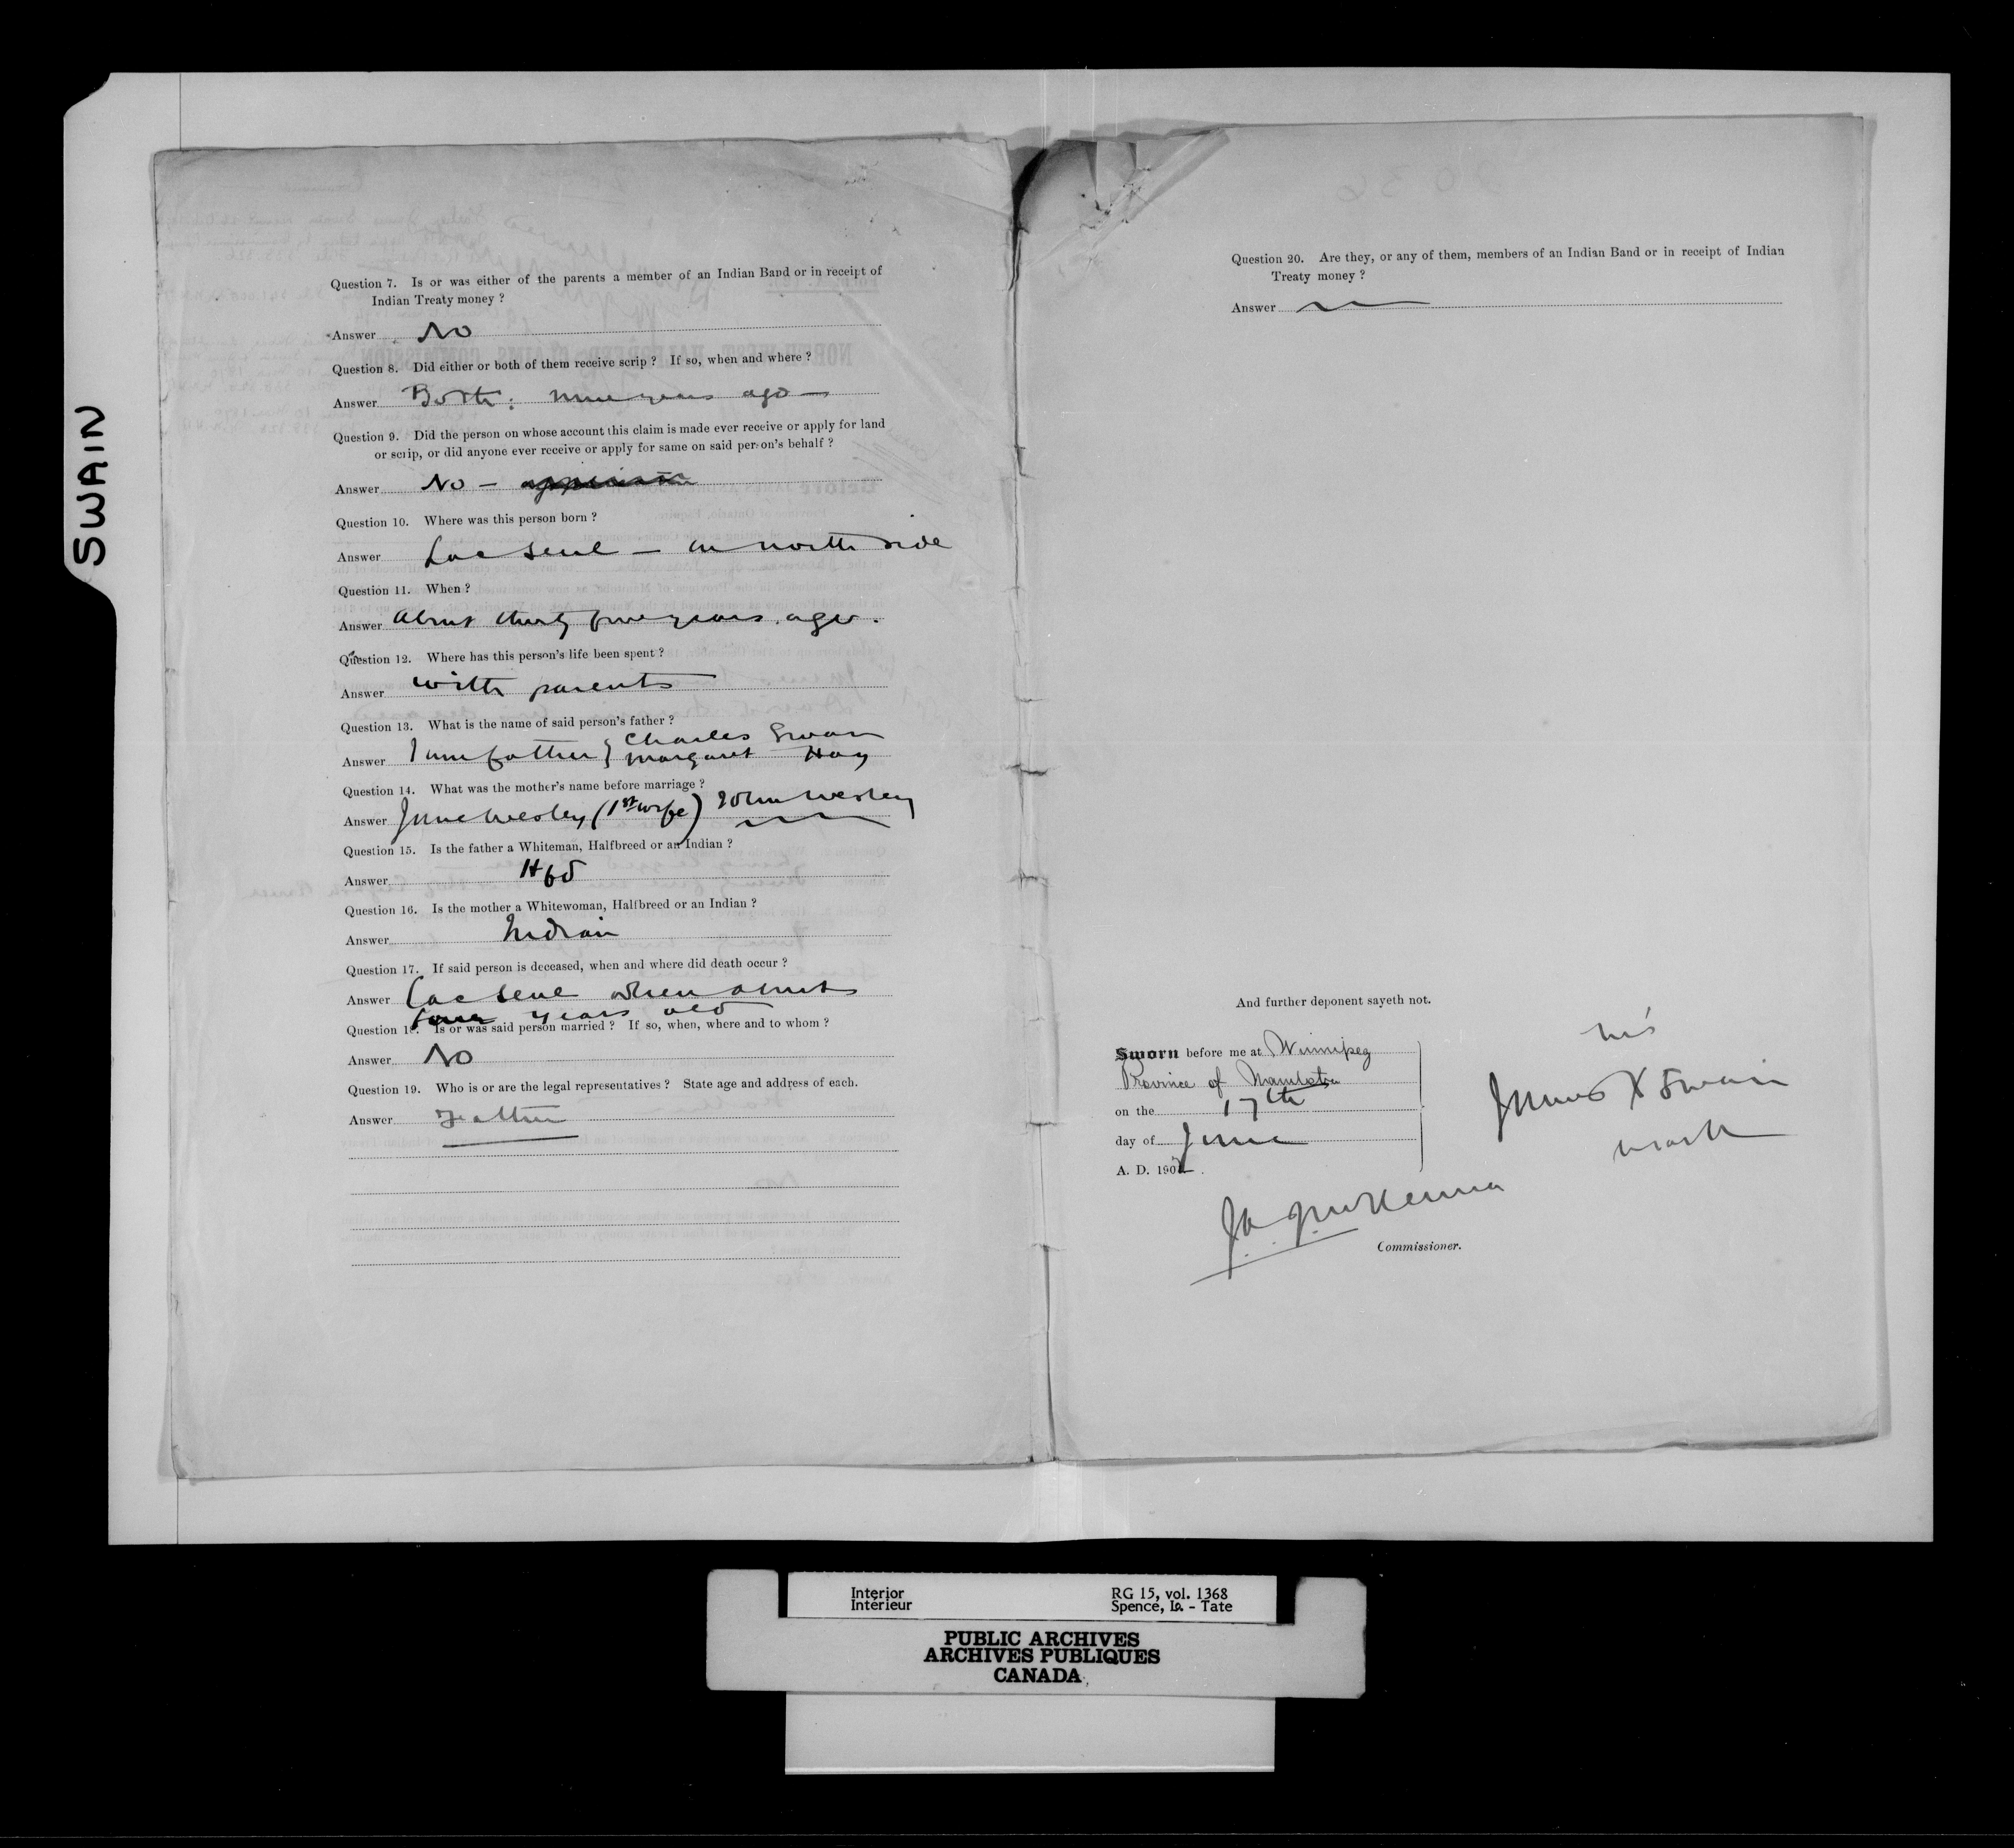 SWAIN
Question 7. Is or was either of the parents a member of an Indian Band or in receipt of
Indian Treaty money ?
Answer No
Question 8. Did either or both of them receive scrip ? If so, when and where ?
Answer Both: nine years ago —
Question 9. Did the person on whose account this claim is made ever receive or apply for land
or scrip, or did anyone ever receive or apply for same on said person's behalf ?
Answer No —
Question 10. Where was this person born ?
Answer Lac Seul — on north side
Question 11. When ?
Answer About thirty five years ago.
Question 12. Where has this person's life been spent ?
Answer with parents
Question 13. What is the name of said person's father ?
Charles Swain
Answer I am father } Margaret Hay
Question 14. What was the mother's name before marriage ?
Answer Jane Wesley (1st wife) John Wesley
Question 15. Is the father a Whiteman, Halfbreed or an Indian ?
Answer Hbd
Question 16. Is the mother a Whitewoman, Halfbreed or an Indian ?
Answer Indian
Question 17. If said person is deceased, when and where did death occur ?
Answer Lac Seul when about
four years old
Question 18. Is or was said person married ? If so, when, where and to whom ?
Answer No
Question 19. Who is or are the legal representatives ? State age and address of each.
Answer Father
Question 20. Are they, or any of them, members of an Indian Band or in receipt of Indian
Treaty money ?
Answer
And further deponent sayeth not.
Sworn before me at Winnipeg
Province of Manitoba
on the 17th
day of June
A. D. 190
his
James X Swain
mark
J A J McKenna
Commissioner.
Interior
Intérieur
RG 15, vol. 1368
Spence, La. - Tate
PUBLIC ARCHIVES
ARCHIVES PUBLIQUES
CANADA